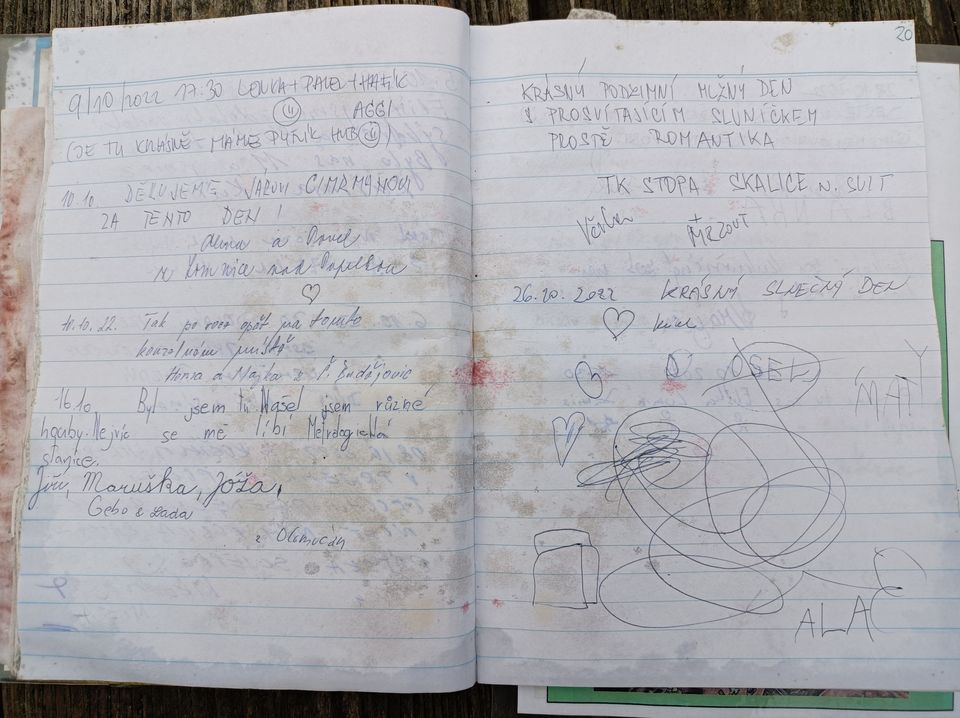 9/10/2022 17.30 LENKA + PAVEL + HAFÍK
AGGI
(JE TU KRÁSNĚ - MÁME PYTLÍK HUB)
10.10. DĚKUJEME JÁROVI CIMRMANOVI
ZA TENTO DEN!
Alena a Pavel
z Lomnice nad Popelkou
11.10.22. Tak po roce opět na tomto
kouzelném místě
Honza a Majka z Č. Budějovic
16.10 Byl jsem tu Našel jsem různé
houby. Nejvíc se mě líbí Metrologická
stanice.
Jiří, Maruška, Jóža,
Gebo & Dada
z Olomouce
20
KRÁSNÝ PODZIMNÍ MLŽNÝ DEN
S PROSVÍTAJÍCÍM SLUNÍČKEM
PROSTĚ ROMANTIKA
TK STOPA SKALICE N. SVIT
26.10.2022 KRÁSNÝ SLNEČNÝ DEN
OSEL
MATY
ALAČ